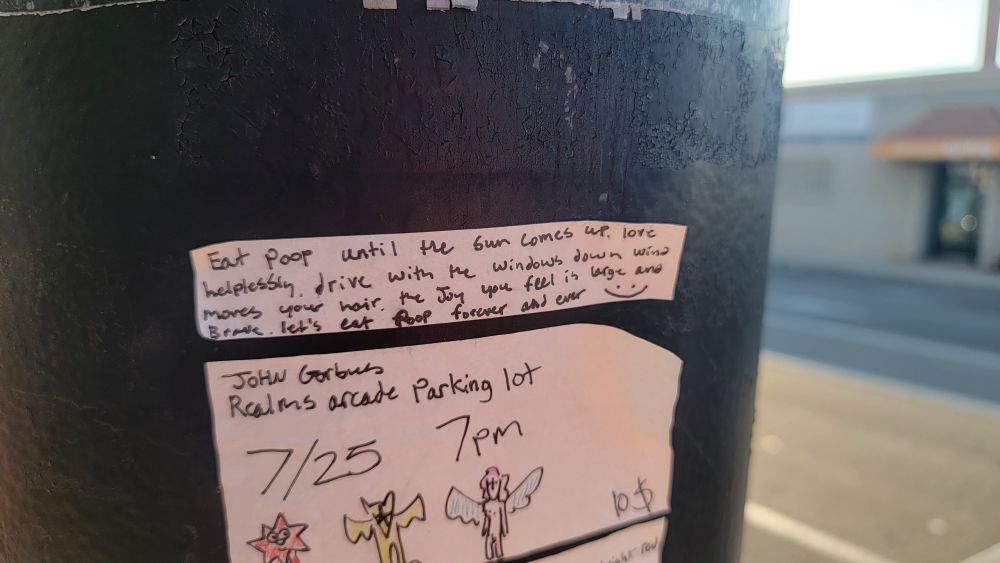 Eat Poop until the sun comes up. love
helplessly. drive with the windows down wind
moves your hair. the Joy you feel is large and
Brave. let's eat Poop forever and ever
JOHN Gorbus
Realms arcade Parking lot
7/25 7pm
10$